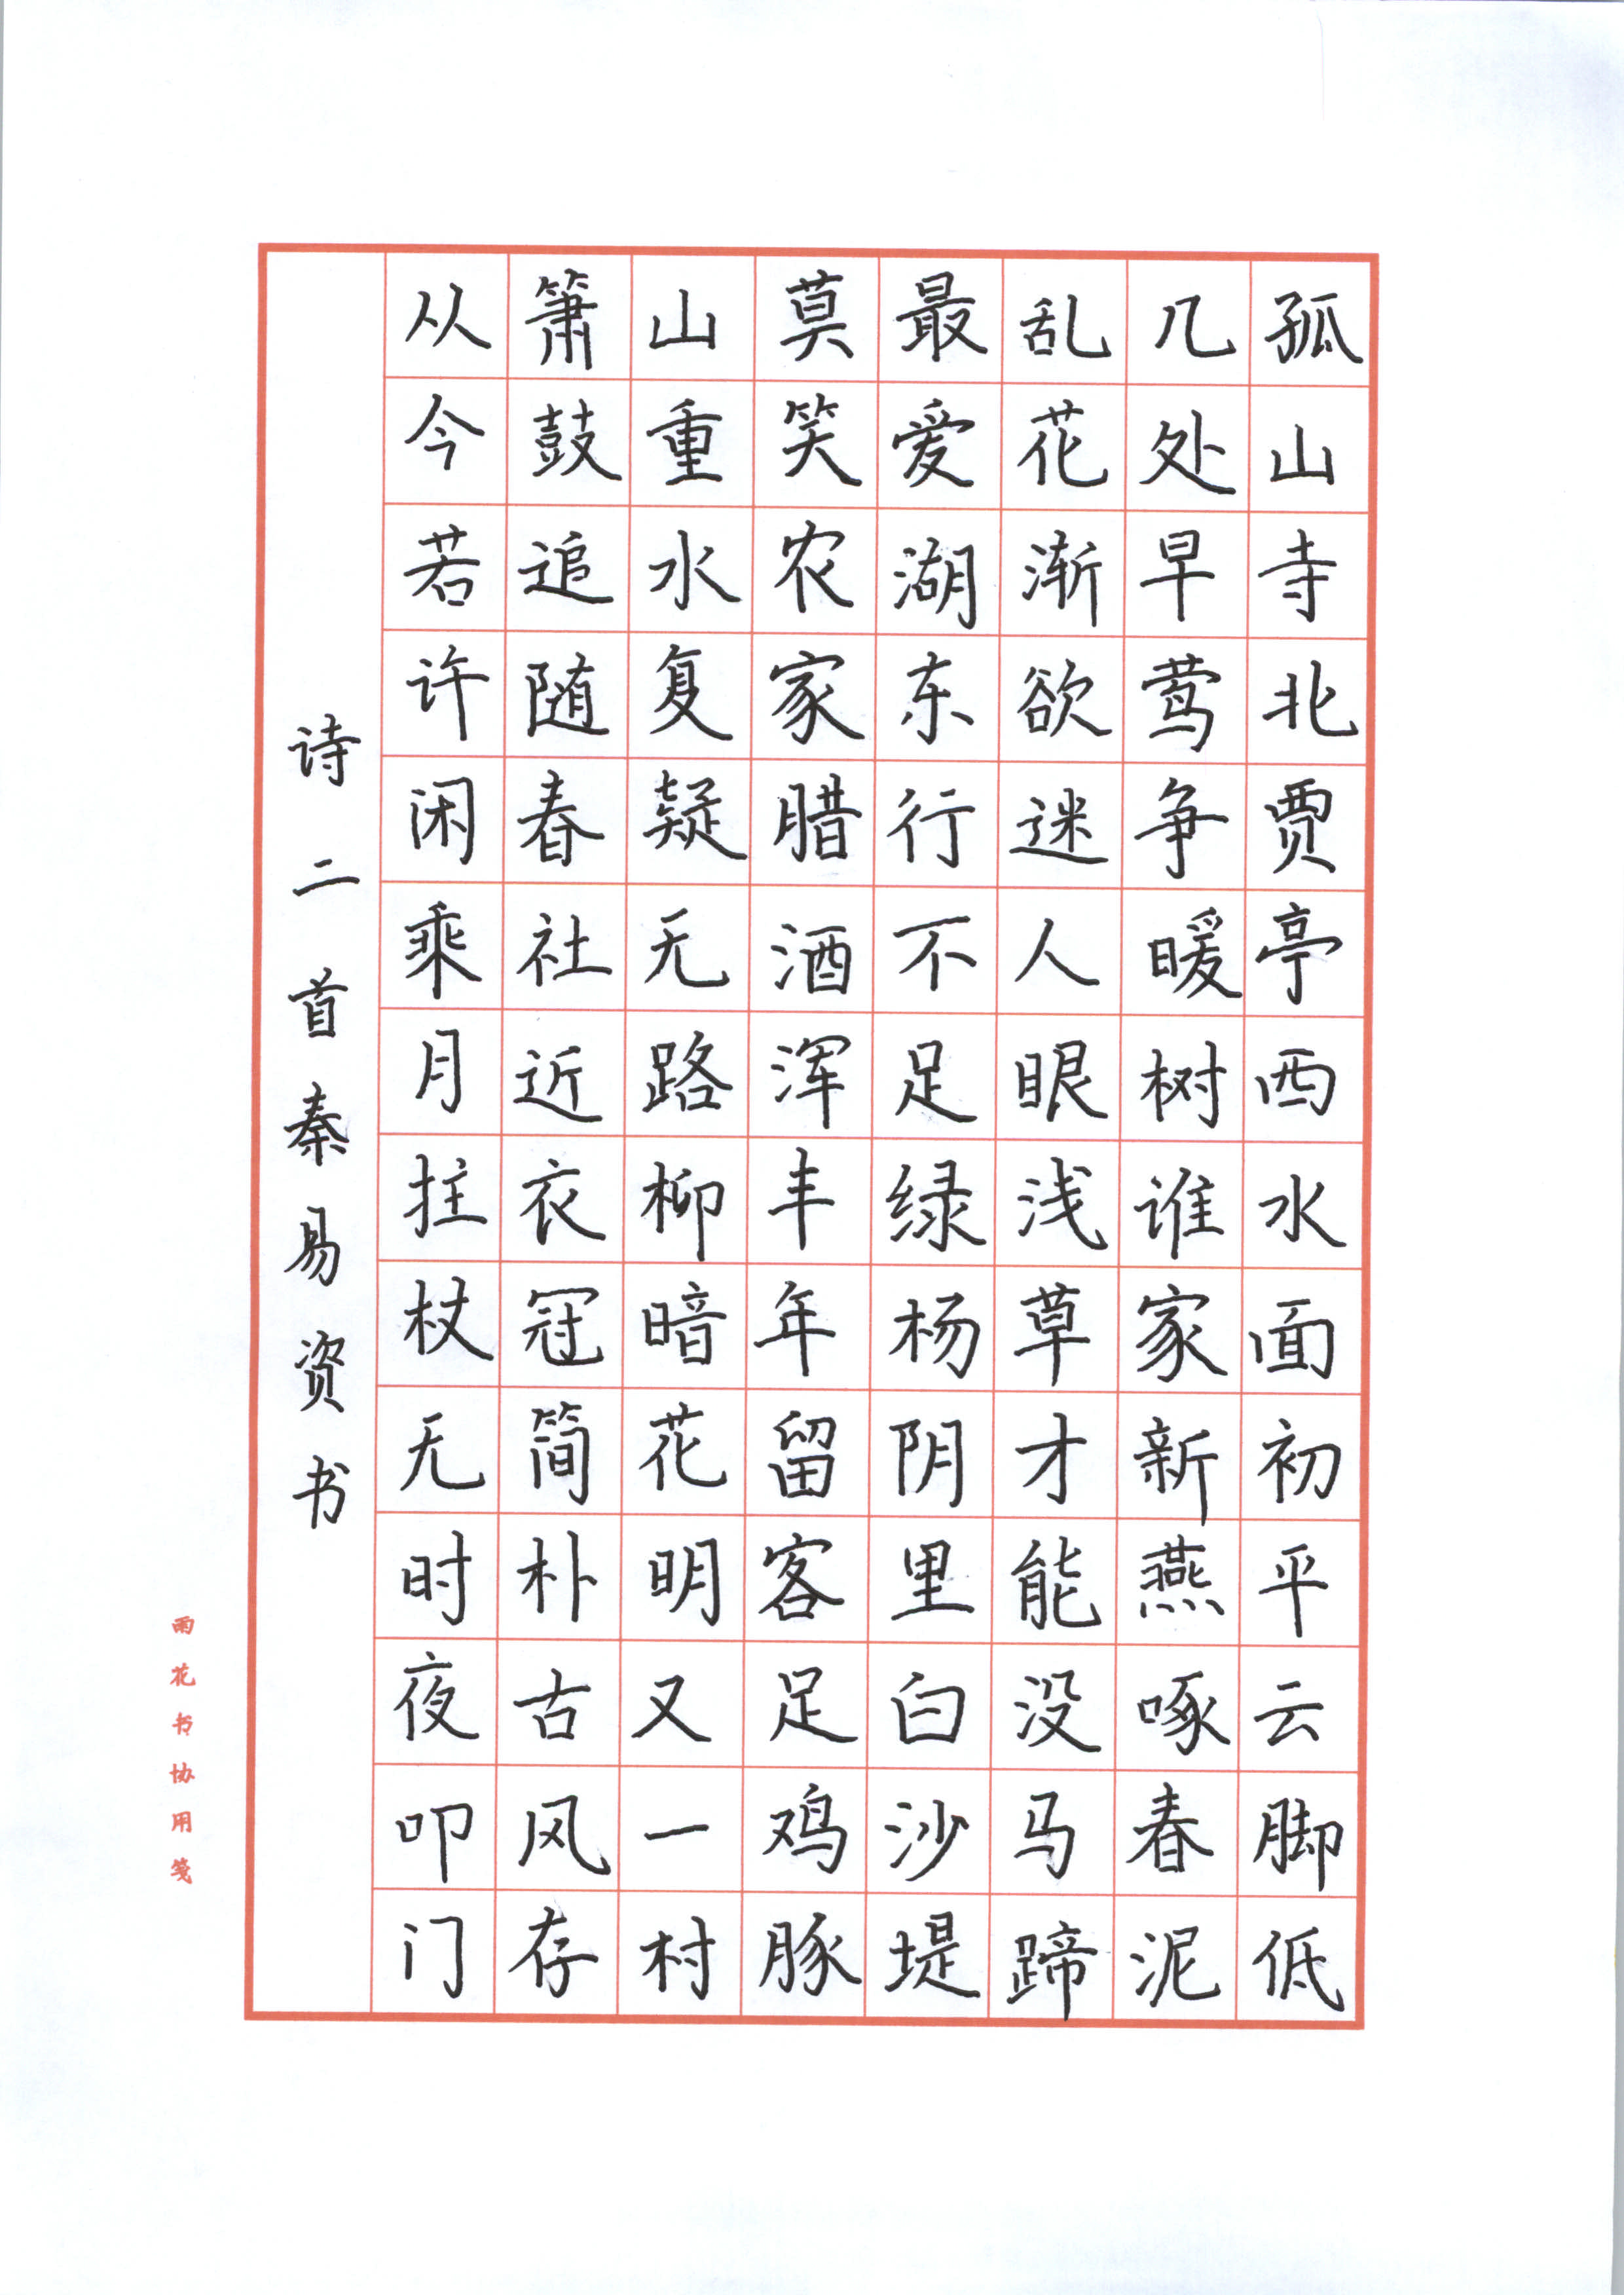 孤山寺北贾亭西水面初平云脚低
几处早莺争暖树谁家新燕啄春泥
乱花渐欲迷人眼浅草才能没马蹄
最爱湖东行不足绿杨阴里白沙堤
莫笑农家腊酒浑丰年留客足鸡豚
山重水复疑无路柳暗花明又一村
箫鼓追随春社近衣冠简朴古风存
从今若许闲乘月拄杖无时夜叩门
诗二首秦易资书
雨花书协用笺